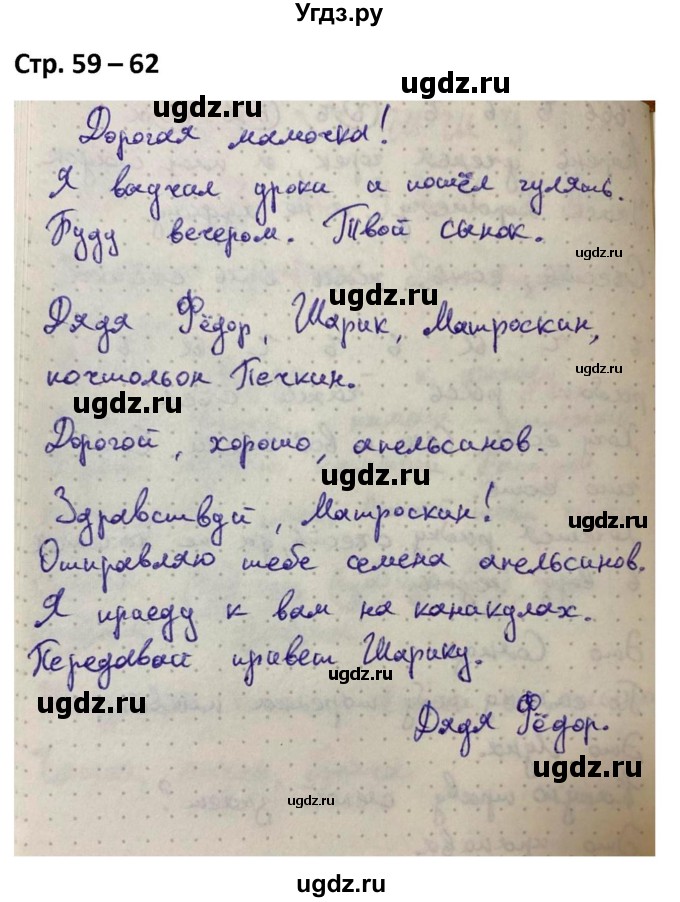 Угдз.ру
Стр. 59 – 62
ugdz.ru
ugdz.ru
Дорогая мамочка!
ugdz.ru
ugdz.ru
Я выучил уроки и пошёл гулять.
ugdz.ru
Буду вечером. Твой сынок.
ugdz.ru
ugdz.ru
Дядя Фёдор, Шарик, Матроскин,
ugdz.ru
почтольон Печкин.
ugdz.ru
Дорогой, хорошо, апельсинов.
ugdz.ru
ugdz.ru
Здравствуй, Матроскин!
ugdz.ru
Отправляю тебе семена апельсинов.
ugdz.ru
Я приеду к вам на каникулах.
ugdz.ru
Передавай привет Шарику.
ugdz.ru
ugdz.ru
Дядя Фёдор.
ugdz.ru
ugdz.ru
ugdz.ru